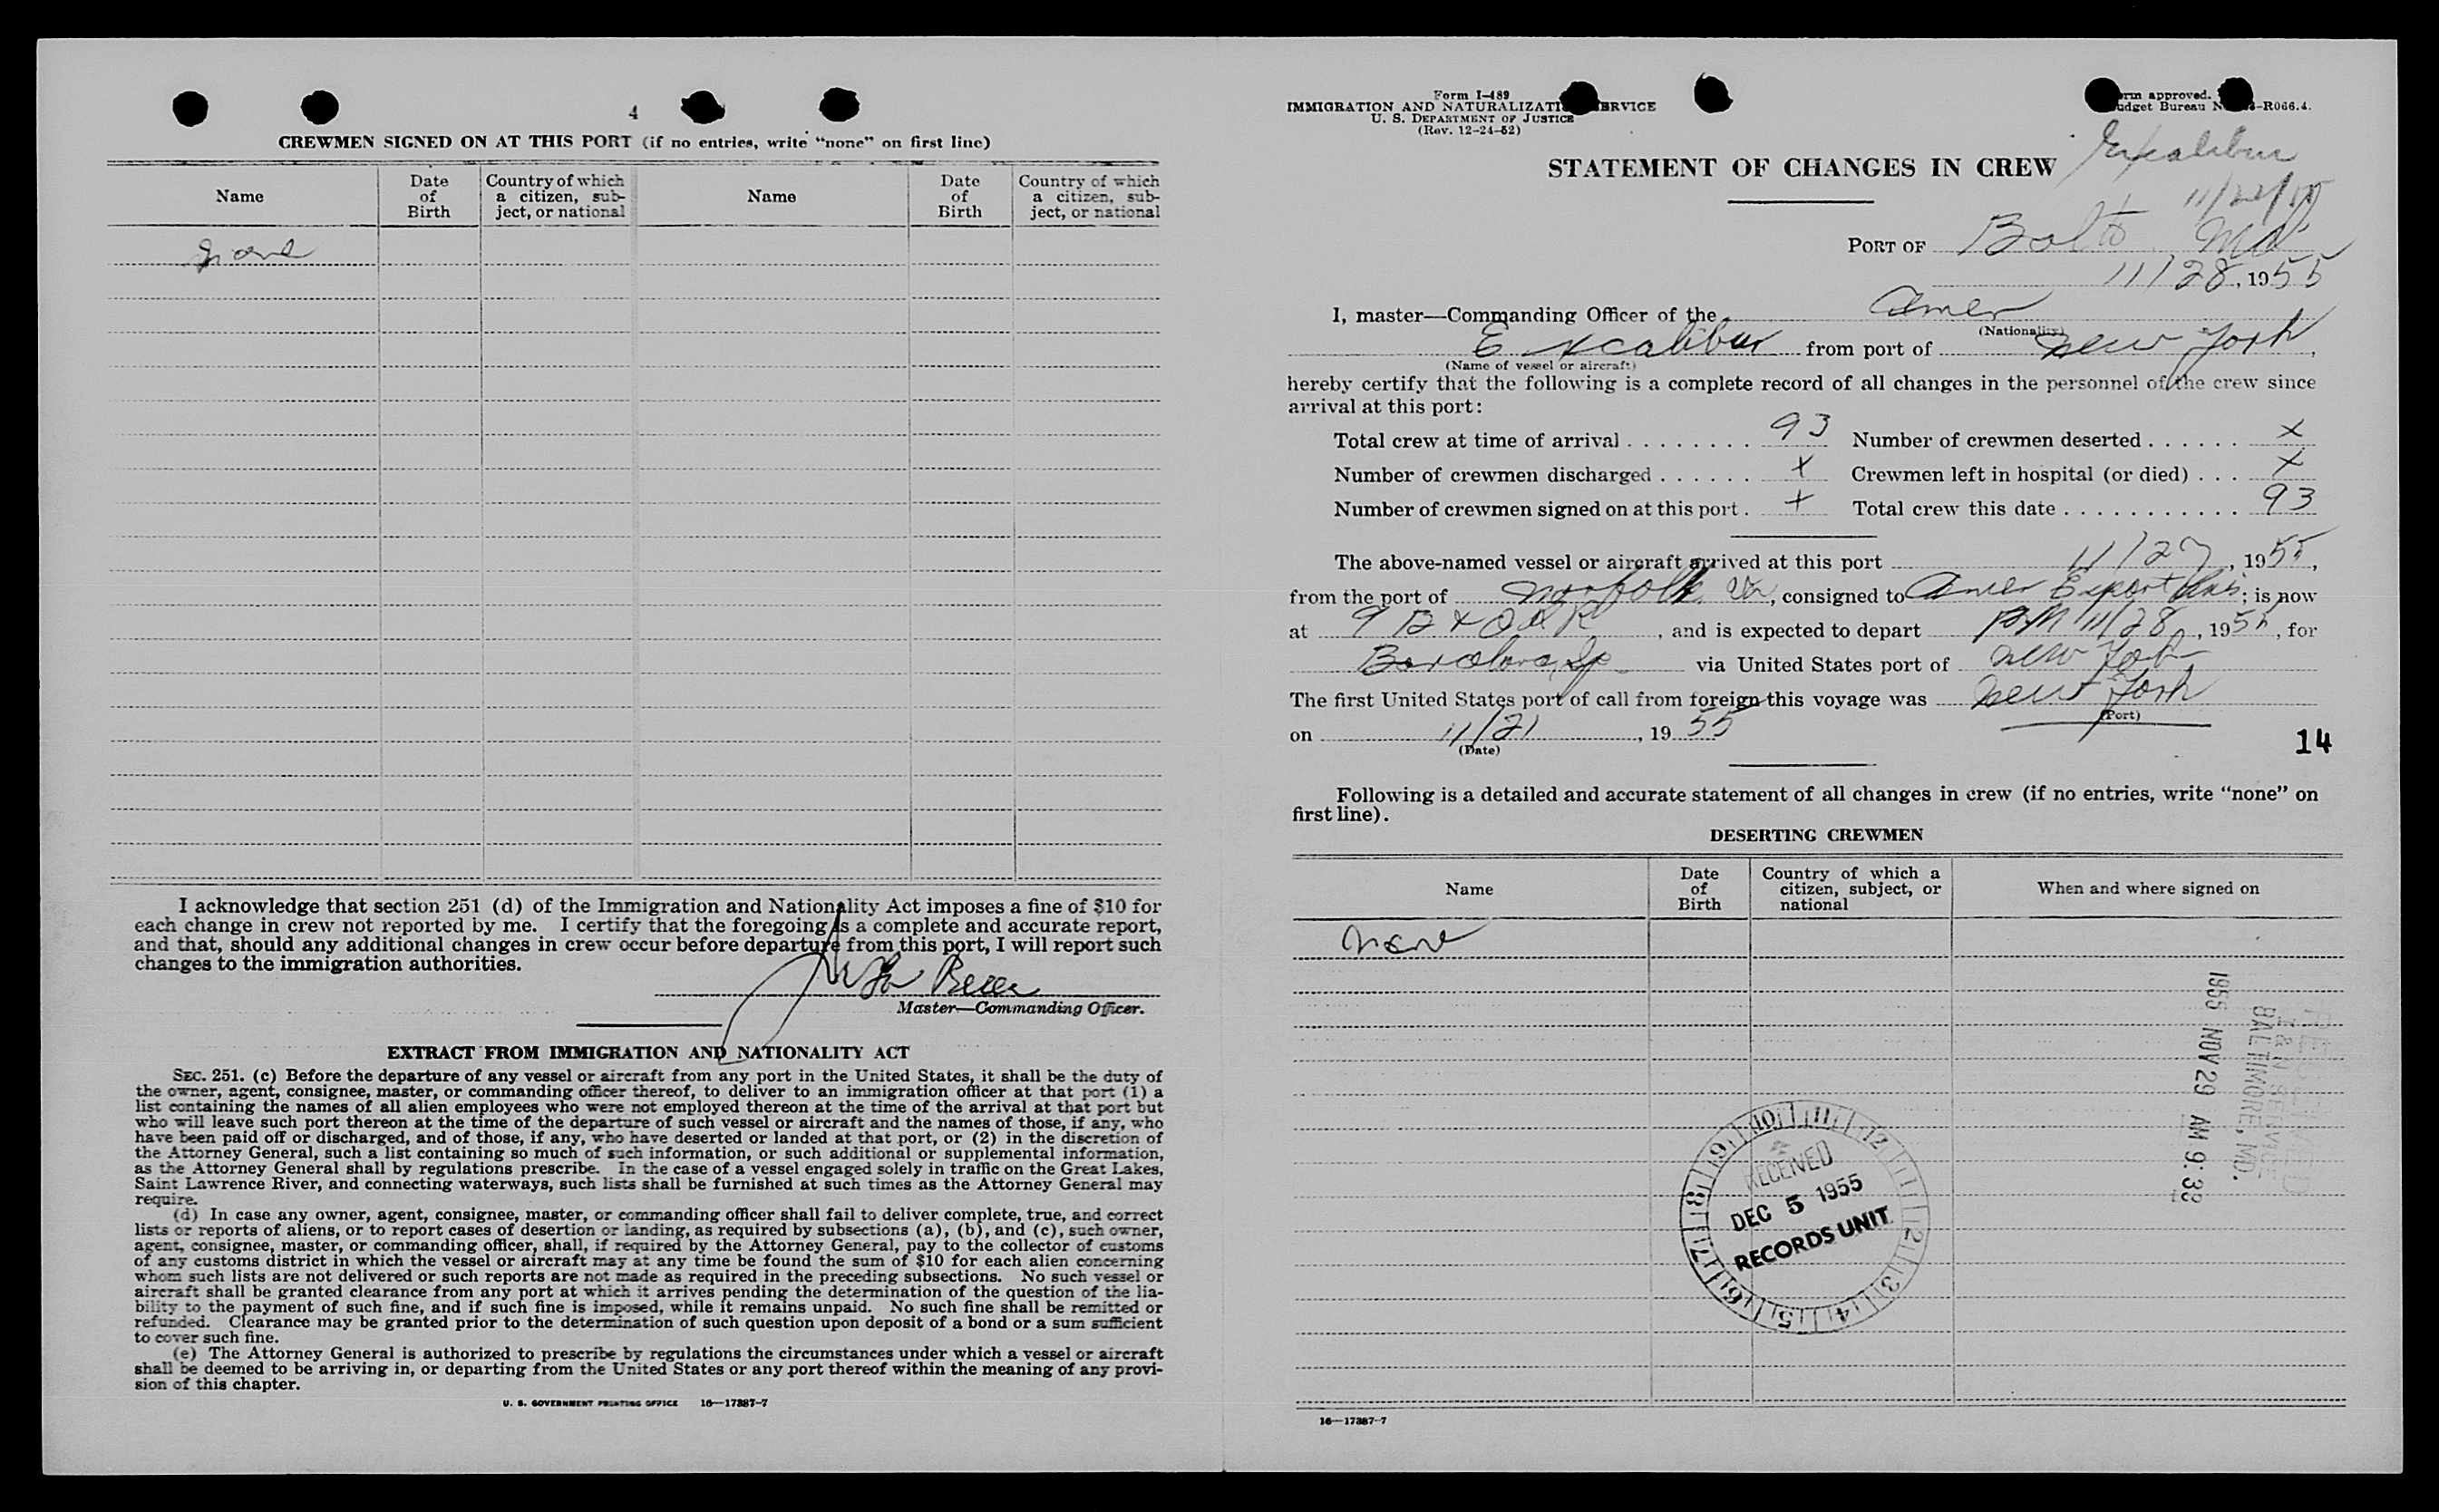 4
CREWMEN SIGNED ON AT THIS PORT (if no entries, write "none" on first line)
Name
Date of Birth
Country of which a citizen, subject, or national
Name
Date of Birth
Country of which a citizen, subject, or national
none
I acknowledge that section 251 (d) of the Immigration and Nationality Act imposes a fine of $10 for
each change in crew not reported by me. I certify that the foregoing is a complete and accurate report,
and that, should any additional changes in crew occur before departure from this port, I will report such
changes to the immigration authorities.
Master—Commanding Officer.
EXTRACT FROM IMMIGRATION AND NATIONALITY ACT
SEC. 251. (c) Before the departure of any vessel or aircraft from any port in the United States, it shall be the duty of
the owner, agent, consignee, master, or commanding officer thereof, to deliver to an immigration officer at that port (1) a
list containing the names of all alien employees who were not employed thereon at the time of the arrival at that port but
who will leave such port thereon at the time of the departure of such vessel or aircraft and the names of those, if any, who
have been paid off or discharged, and of those, if any, who have deserted or landed at that port, or (2) in the discretion of
the Attorney General, such a list containing so much of such information, or such additional or supplemental information,
as the Attorney General shall by regulations prescribe. In the case of a vessel engaged solely in traffic on the Great Lakes,
Saint Lawrence River, and connecting waterways, such lists shall be furnished at such times as the Attorney General may
require.
(d) In case any owner, agent, consignee, master, or commanding officer shall fail to deliver complete, true, and correct
lists or reports of aliens, or to report cases of desertion or landing, as required by subsections (a), (b), and (c), such owner,
agent, consignee, master, or commanding officer, shall, if required by the Attorney General, pay to the collector of customs
of any customs district in which the vessel or aircraft may at any time be found the sum of $10 for each alien concerning
whom such lists are not delivered or such reports are not made as required in the preceding subsections. No such vessel or
aircraft shall be granted clearance from any port at which it arrives pending the determination of the question of the lia-
bility to the payment of such fine, and if such fine is imposed, while it remains unpaid. No such fine shall be remitted or
refunded. Clearance may be granted prior to the determination of such question upon deposit of a bond or a sum sufficient
to cover such fine.
(e) The Attorney General is authorized to prescribe by regulations the circumstances under which a vessel or aircraft
shall be deemed to be arriving in, or departing from the United States or any port thereof within the meaning of any provi-
sion of this chapter.
U. S. GOVERNMENT PRINTING OFFICE 16—17387-7
Form I-489
IMMIGRATION AND NATURALIZATI RVICE
U. S. DEPARTMENT OF JUSTICE
(Rev. 12-24-52)
rm approved.
udget Bureau N -R066.4.
Excalibur
STATEMENT OF CHANGES IN CREW
PORT OF Balto Md
11/28, 1955
I, master—Commanding Officer of the Amer
(Nationality)
Excalibur from port of New York,
(Name of vessel or aircraft)
hereby certify that the following is a complete record of all changes in the personnel of the crew since
arrival at this port:
Total crew at time of arrival 93 Number of crewmen deserted x
Number of crewmen discharged x Crewmen left in hospital (or died) x
Number of crewmen signed on at this port x Total crew this date 93
The above-named vessel or aircraft arrived at this port 11/27, 1955,
from the port of Norfolk Va, consigned to Amer Export Lines; is now
at 9 B & O RR, and is expected to depart PM 11/28, 1955, for
Barcelona, Sp via United States port of New York
The first United States port of call from foreign this voyage was New York
(Port)
on 11/21, 1955
(Date)
14
Following is a detailed and accurate statement of all changes in crew (if no entries, write "none" on
first line).
DESERTING CREWMEN
Name
Date of Birth
Country of which a citizen, subject, or national
When and where signed on
None
RECEIVED
I & N SERVICE
BALTIMORE, MD.
1955 NOV 29 AM 9:33
9 10 11 12 1 2 3 4 5 6 7 8
RECEIVED
DEC 5 1955
RECORDS UNIT
16—17387-7